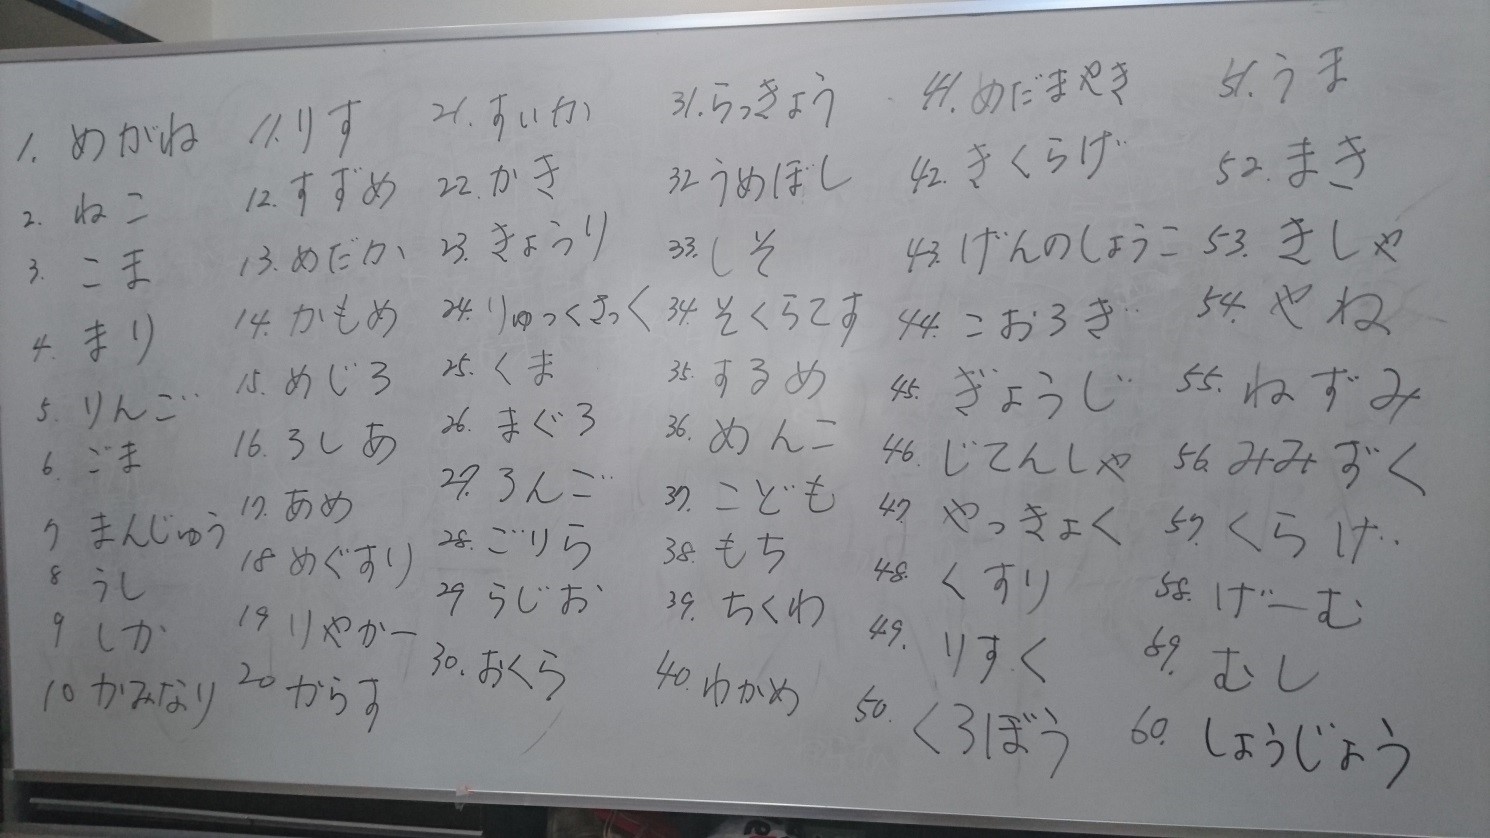 1. めがね
2. ねこ
3. こま
4. まり
5. りんご
6. ごま
7 まんじゅう
8 うし
9 しか
10 かみなり
11. りす
12. すずめ
13. めだか
14. かもめ
15. めじろ
16. ろしあ
17. あめ
18 めぐすり
19 りやかー
20 からす
21. すいか
22. かき
23. きょうり
24. りゅっくさっく
25. くま
26. まぐろ
27. ろんご
28. ごりら
29 らじお
30. おくら
31. らっきょう
32 うめぼし
33. しそ
34. そくらてす
35. するめ
36. めんこ
37. こども
38. もち
39. ちくわ
40. わかめ
41. めだまやき
42. きくらげ
43. げんのしょうこ
44. こおろぎ
45. ぎょうじ
46. じてんしゃ
47. やっきょく
48. くすり
49. りすく
50. くろぼう
51. うま
52. まき
53. きしゃ
54. やね
55. ねずみ
56. みみずく
57. くらげ
58. げーむ
59. むし
60. しょうじょう